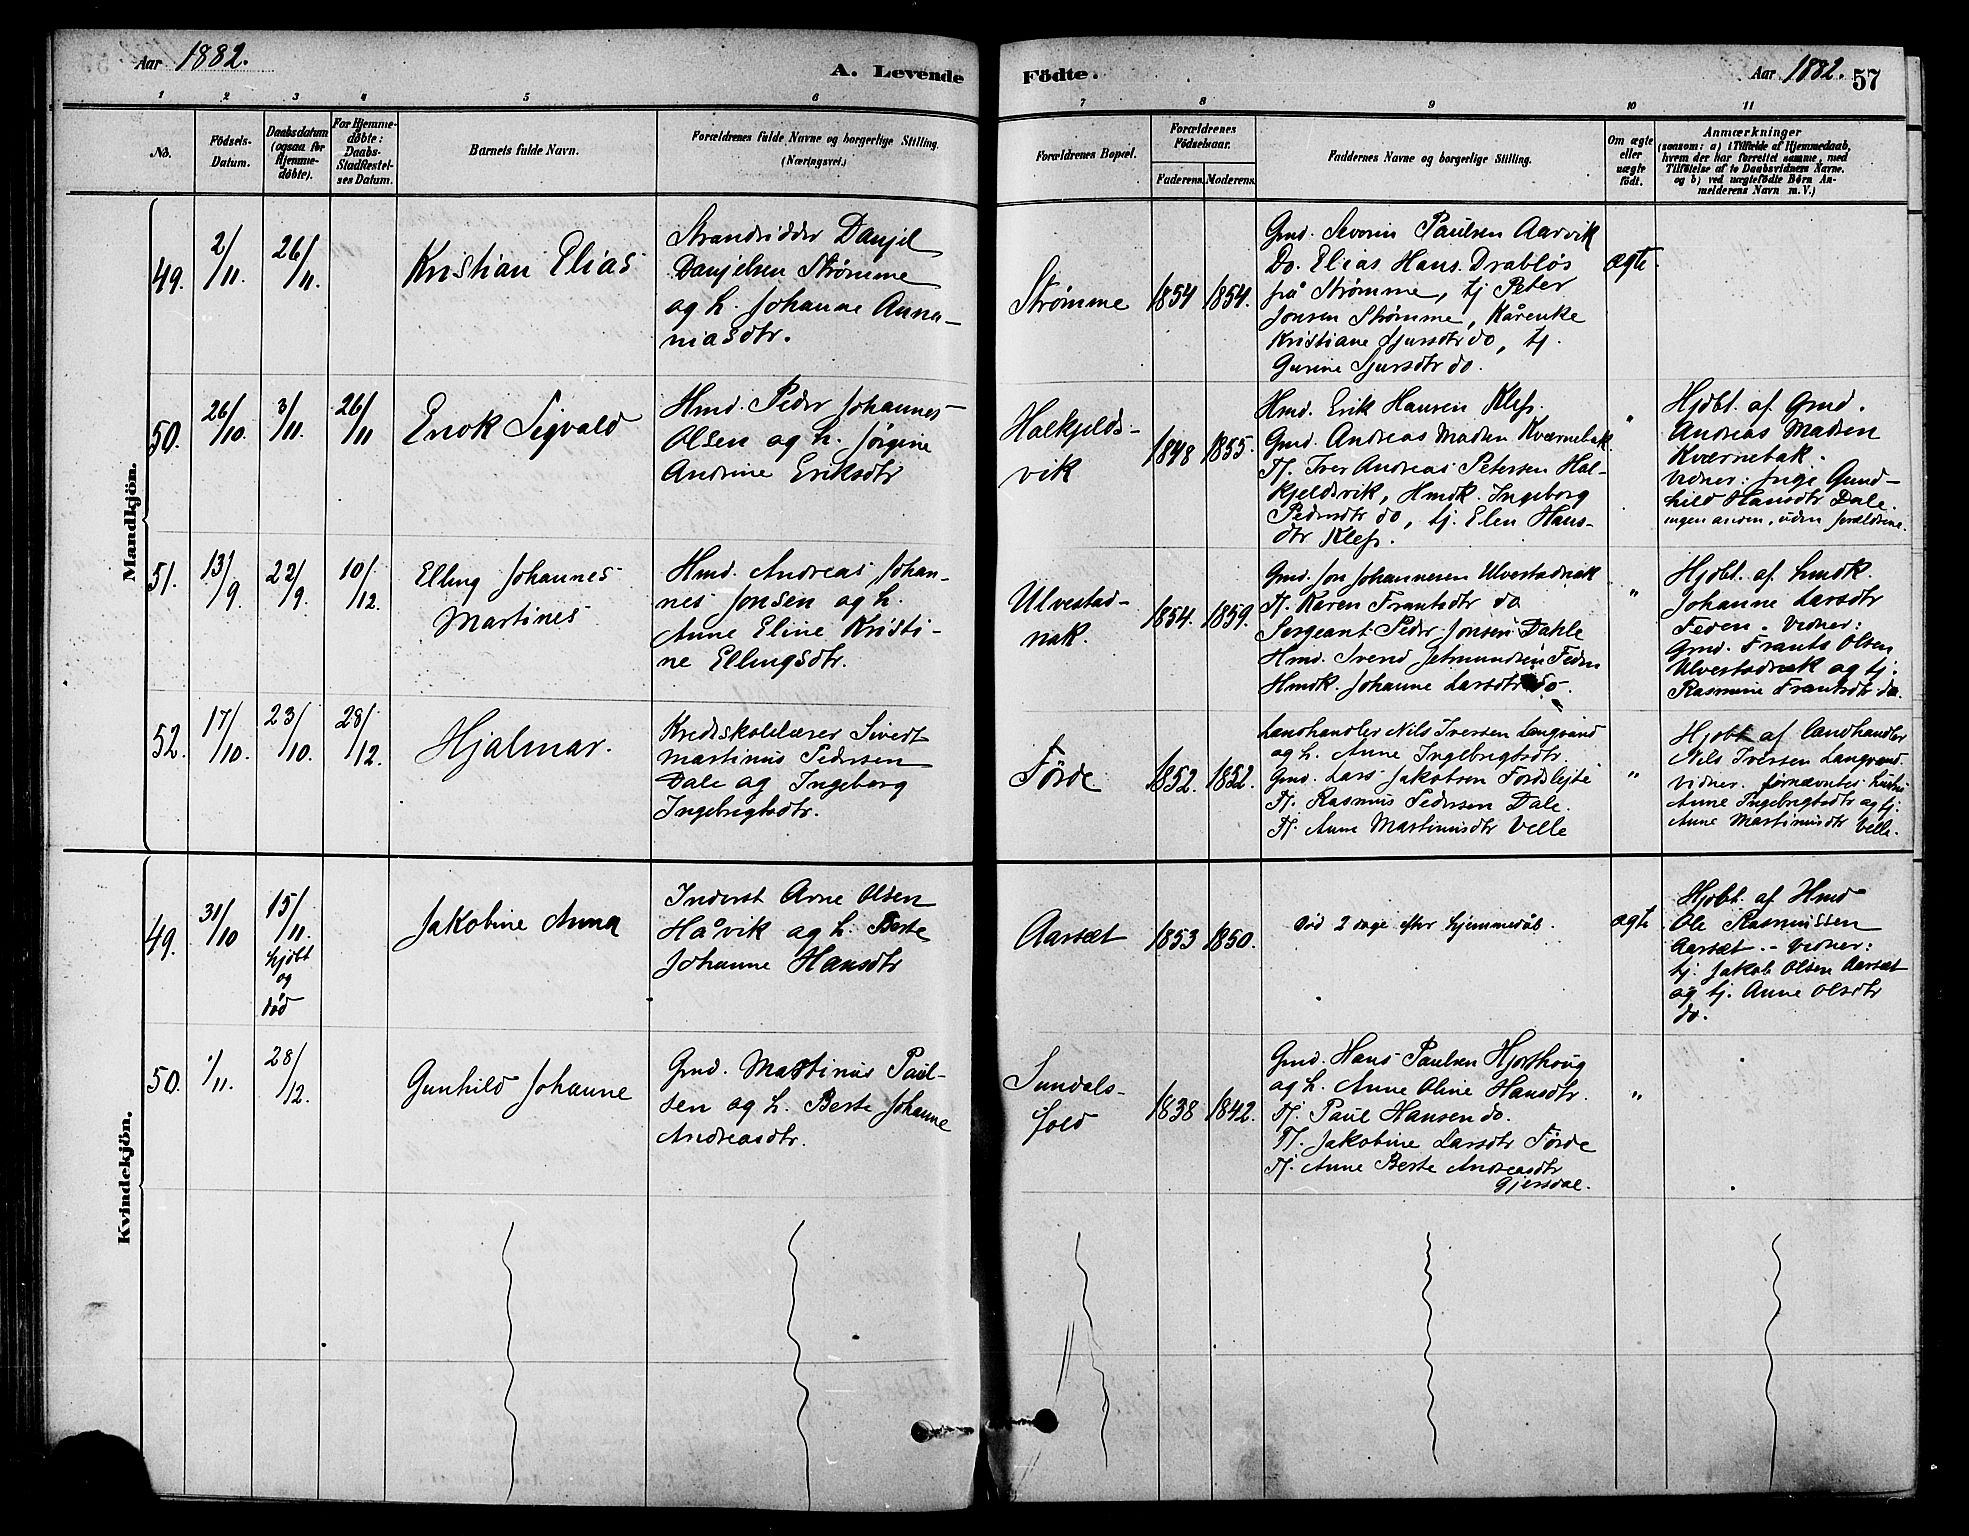 Aar 1882.
A. Levende Födte.
Aar 1882. 57
1 2 3 4 5 6 7 8 9 10 11
No.
Födsels-Datum.
Daabsdatum (ogsaa for Hjemme-döbte).
For Hjemme-döbte: Daabs-Stadfæstel-ses Datum.
Barnets fulde Navn.
Forældrenes fulde Navne og borgerlige Stilling. (Næringsvei.)
Forældrenes Bopæl.
Forældrenes Födselsaar.
Faderens. Moderens.
Faddernes Navne og borgerlige Stilling.
Om ægte eller uægte födt.
Anmærkninger
(saasom: a) i Tilfælde af Hjemmedaab,
hvem der har forrettet samme, med
Tilföielse af to Daabsvidners Navne.
og b) ved uægtefödte Börn An-
melderens Navn m. V.)
Mandkjön.
49. 2/11. 26/11. Kristian Elias
Strandsidder Danjel
Danjelsen Strømme
og h. Johanne Anna-
niasdtr.
Strømme 1854 1854.
Gmd. Severin Paulsen Aarvik
Do. Elias Hans. Drabløs
på Strømme, tj Peter
Jonsen Strømme, Kårenke
Kristiane Sjursdtr do, tj.
Gurine Sjursdtr do.
ægte.
50. 26/10. 3/11. 26/11 Enok Sigvald
Hmd. Peder Johannes-
Olsen og h. Jørgine
Andrine Eriksdtr
Halkjelds-
vik 1848 1855.
Hmd. Erik Hansen Klefs.
Gmd. Andreas Madsen Kværnebak.
Tj. Iver Andreas Petersen Hal-
kjeldsvik, Hmdk. Ingeborg
Pedersdtr do, tj. Elen Hans-
dtr Klefs.
"
Hjdbt. af Gmd.
Andreas Madsen
Kværnebak.
Vidner: Pige Gund-
hild Hansdtr Dale.
ingen anden, uden forældrene.
51. 13/9. 22/9. 10/12. Elling Johannes
Martines
Hmd. Andreas Johan-
nes Jonsen og h.
Anne Eline Kristi-
ne Ellingsdtr.
Ulvestad-
nak. 1854. 1859.
Gmd. Jon Johannesen Ulvestadnak
Tj. Karen Frantsdtr do
Sergeant Peder Jonsen Dahle
Hmd. Svend Jetmundsen Feden
Hmdk. Johanne Larsdtr do.
"
Hjdbt. af hmdk.
Johanne Larsdtr
Feden. Vidner:
Gmd. Frants Olsen
Ulvestadnak og tj.
Rasmine Frantsdtr do.
52. 17/10. 23/10. 28/12. Hjalmar.
Kredsskolelærer Sivert
Martinus Pedersen
Dale og Ingeborg
Ingebrigtsdtr.
Førde 1852. 1852.
Landhandler Nils Iversen Langvand
og h. Anne Ingebrigtsdtr.
Gmd. Lars Jakobsen
Tj. Rasmus Pedersen Dale.
Tj. Anne Martinusdtr Velle
"
Hjdbt af landhandler
Nils Iversen Langvand
vidner. fornævntes hustru
Anne Ingebrigtsdtr og tj.
Anne Martinusdtr Velle.
Kvindekjön.
49. 31/10 15/11. hjdbt og død
Jakobine Anna
Inderst Arne Olsen
Håvik og h. Berte
Johanne Hansdtr
Aarsæt 1853 1850.
død 2 dage efter hjemmedåb.
ægte
Hjdbt. af Hmd
Ole Rasmussen
Aarsæt. - Vidner:
tj. Jakob Olsen Aarsæt
og tj. Anne Olsdtr
do.
50. 1/11. 28/12. Gunhild Johanne
Gmd. Martinus Paul-
sen og h. Berte Johanne
Andreasdtr.
Sundals-
fold 1838 1842.
Gmd. Hans Paulsen Hjorthoug
og h. Anne Oline Hansdtr.
Tj. Paul Hansen do.
Tj. Jakobine Larsdtr Førde
Tj. Anne Berte Andreasdtr
Gjersdal.
"